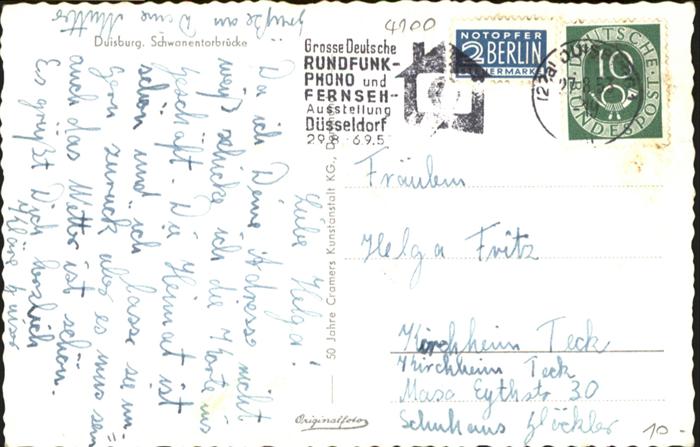 4100
Duisburg. Schwanentorbrücke
Grosse Deutsche
RUNDFUNK-
PHONO und
FERNSEH-
Ausstellung
Düsseldorf
29.8 - 6.9.5
NOTOPFER
2 BERLIN
STEUERMARKE
DEUTSCHE
10
BUNDESPOST
(22a) DUISBURG
Liebe Helga!
Da ich Deine Adresse nicht
weiß schicke ich die Karte ins
Geschäft. Die Heimat ist
schön und ich lasse sie un-
gern zurück aber es muss sein
auch das Wetter ist schön.
Es grüßt Dich herzlich
Kläre
grüße an Deine Mutter
50 Jahre Cramers Kunstanstalt KG.,
Originalfoto
Fräulein
Helga Fritz
Kirchheim Teck
Kirchheim Teck
Max Eythstr 30
Schuhaus Glöckler
10-